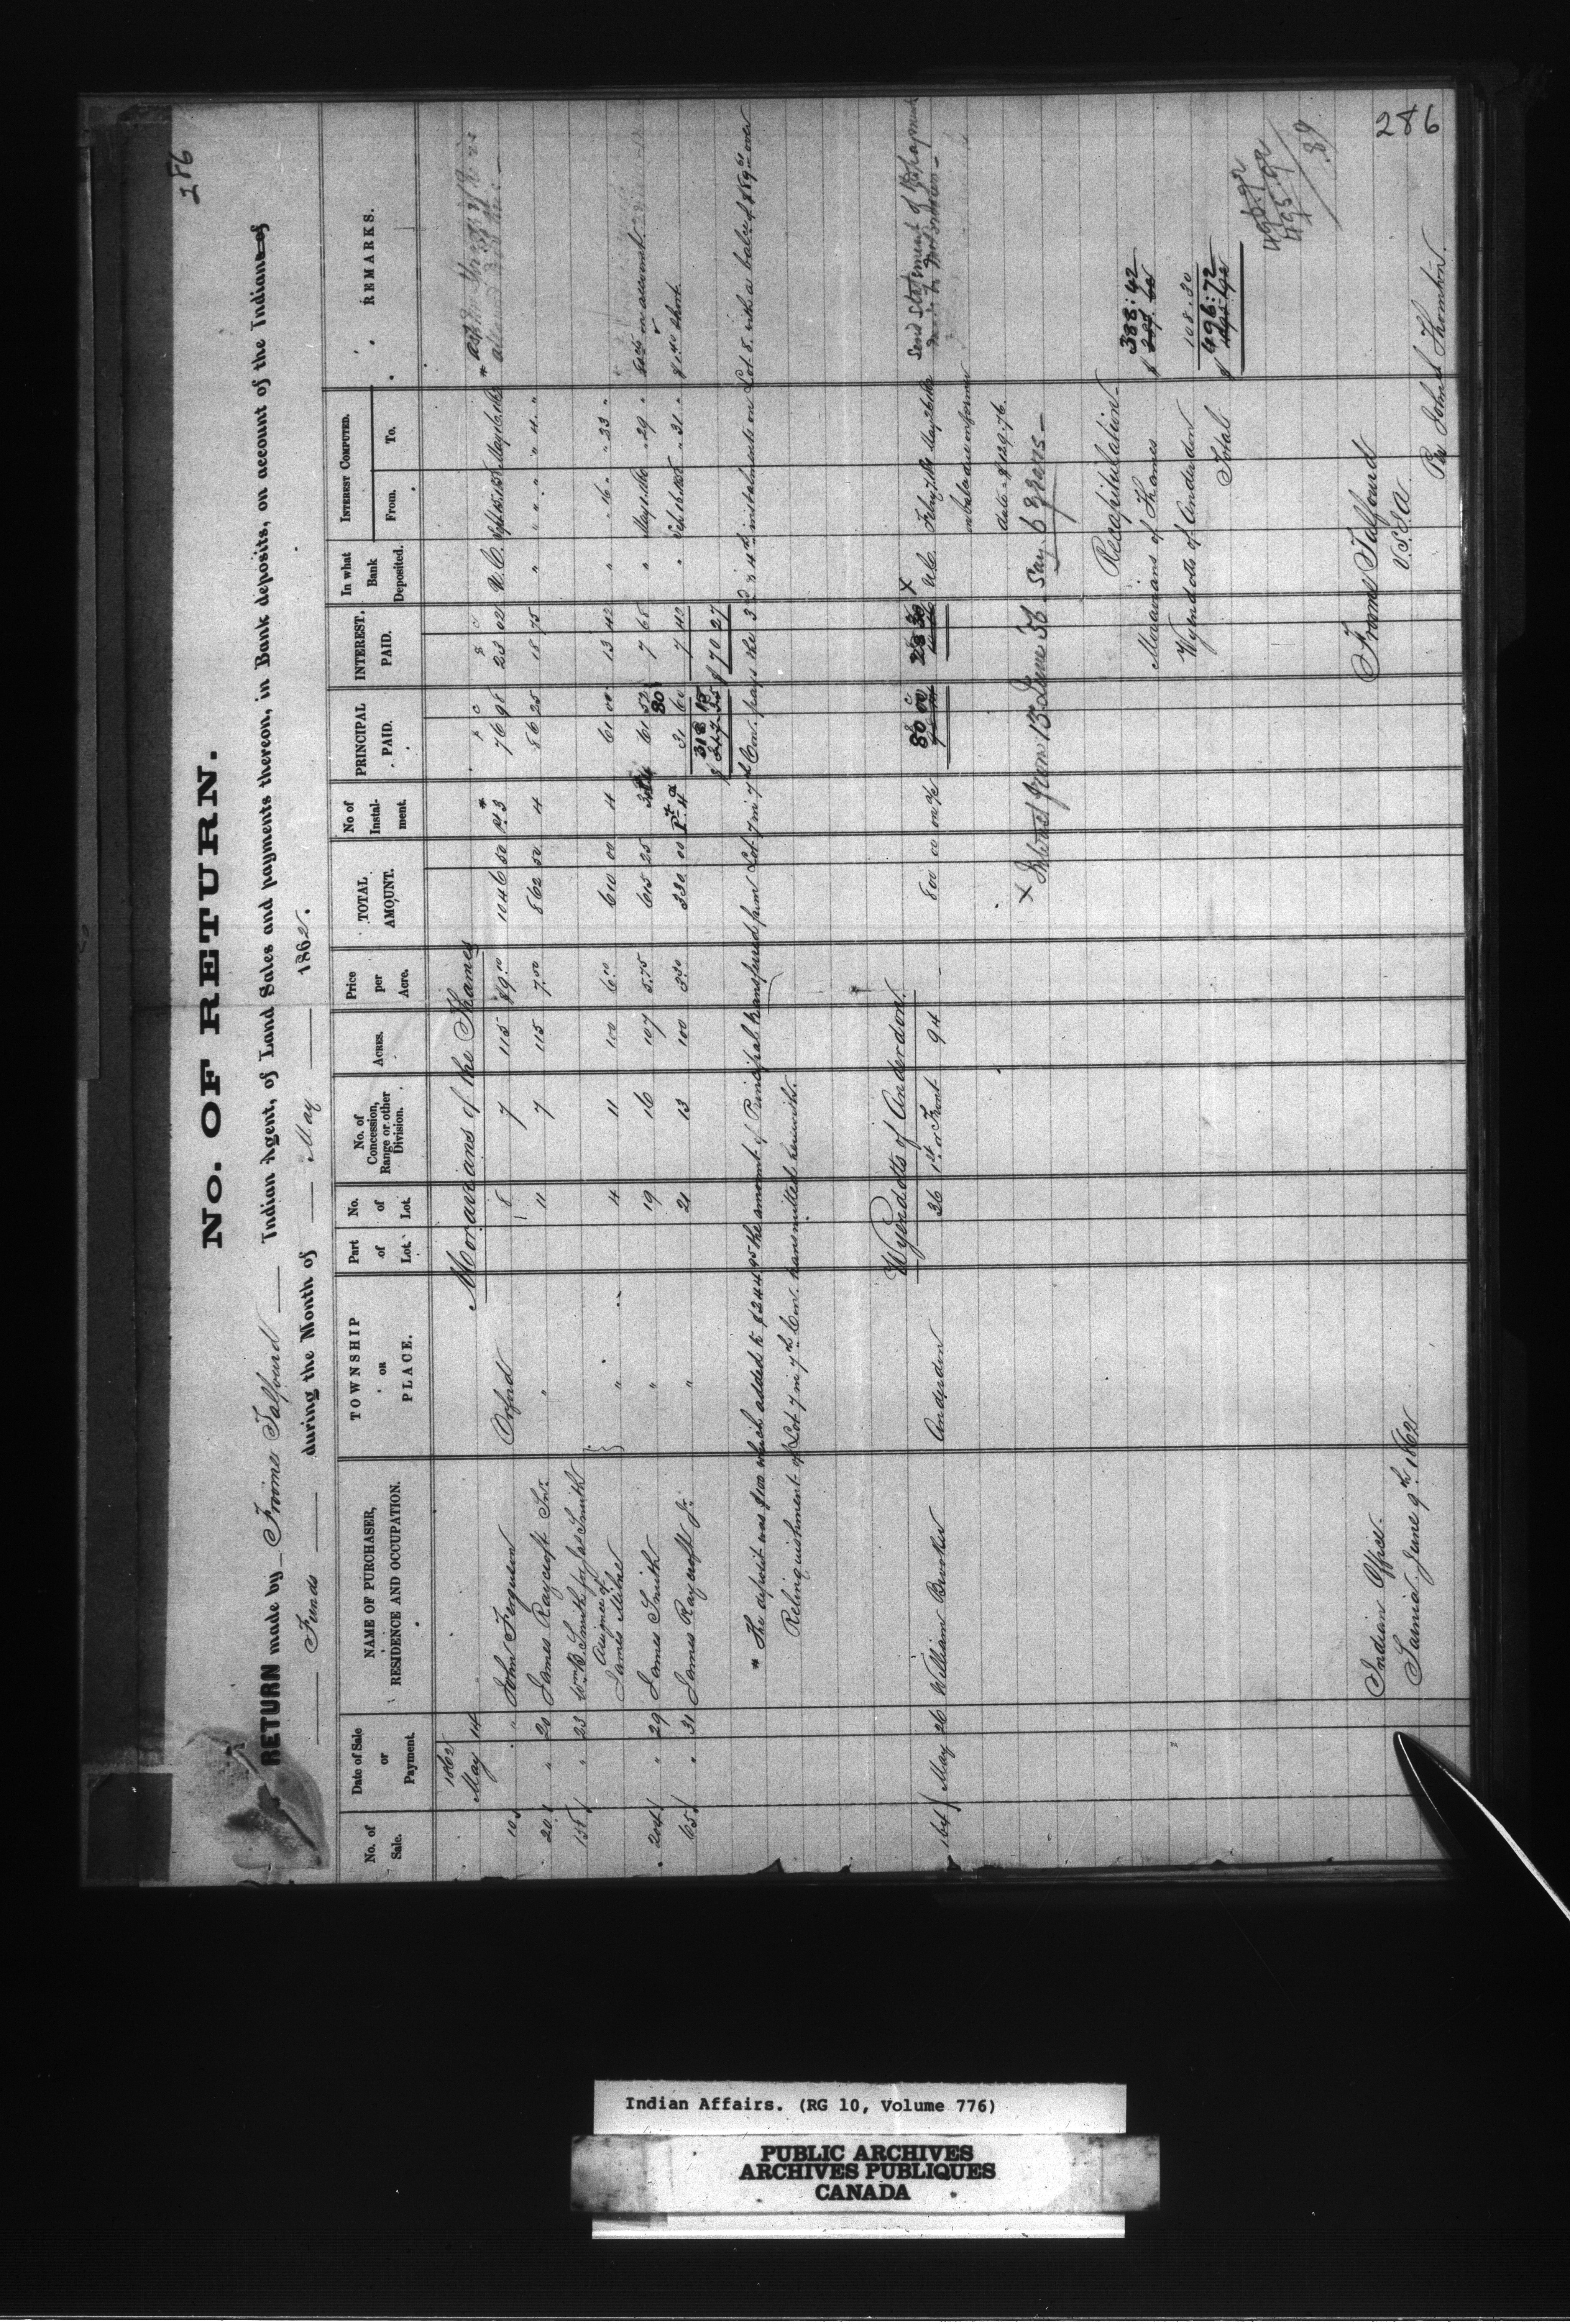 286
No. OF RETURN.
RETURN made by Froome Talfourd Indian Agent, of Land Sales and payments thereon, in Bank deposits, on account of the Indians of
Funds during the Month of May 1862.
No. of Sale. Date of Sale or Payment. NAME OF PURCHASER, RESIDENCE AND OCCUPATION. TOWNSHIP OR PLACE. Part of Lot. No. of Lot. No. of Concession, Range or other Division. ACRES. Price per Acre. TOTAL AMOUNT. No of Instalment. PRINCIPAL PAID. INTEREST. PAID. In what Bank Deposited. INTEREST COMPUTED. From. To. REMARKS.
1862
May 14 Moravians of the Thames
10 " " John Ferguson Orford 8 7 115 $9.10 1046 50 Pt 3 * 76 98 23 02 U.C. Sept 15 1858 May 16 1862 *
20 " 20 James Raycroft Snr. " 11 7 115 7.50 862 50 4 86 25 18 75 " " " " " 4 "
155 " 23 Wm B. Smith for Jas Smith
Assignee of
James Milne " 4 11 100 6.10 610 00 4 61 00 13 42 " " 16 " " 23 "
204 " 29 James Smith " 19 16 107 5.75 615 25 61 52 7 68 " May 1 1860 " 29 " on account
65 " 31 James Raycroft Jr " 21 13 100 3.30 330 00 Pt 4 31 60 7 40 " " 31 " $1.40 short.
318 15 $ 70 27
* The deposit was $100 which added to $244.95 the amount of Principal transfered from Lot 7 in 7th Con. pays the 3rd & 4th instalments on Lot 8. with a balce of $89 over
Relinquishment of Lot 7 in 7th Con. transmitted herewith.
Wyandotts of Anderdon.
164 May 26 William Brooker Anderdon 26 1st or Front 94 800 00 on a/c 80 00 28 30 X U.C. Feby 7 May 26 1862 Send Statement of
on balance due on former
date - $129.76.
X Interest from 13 June 56 - Say. 6 years -
Recapitulation -
Moravians of Thames $ 388:42
Wyandotts of Anderdon 108.30
Total $ 496:72
496.92
495.92
89
Indian Office.
Sarnia June 9th 1862
Froome Talfourd
V.S.I.A
Per John Thornton.
286
Indian Affairs. (RG 10, Volume 776)
PUBLIC ARCHIVES
ARCHIVES PUBLIQUES
CANADA